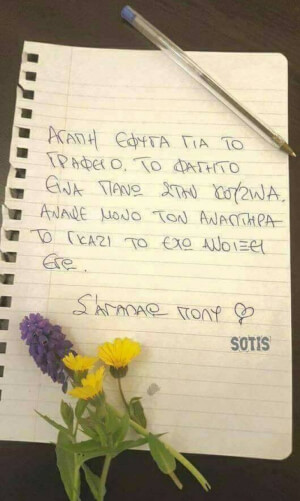 ΑΓΑΠΗ ΕΦΥΓΑ ΓΙΑ ΤΟ
ΓΡΑΦΕΙΟ. ΤΟ ΦΑΓΗΤΟ
ΕΙΝΑ ΠΑΝΩ ΣΤΑΝ ΚΟΥΖΙΝΑ.
ΑΝΑΨΕ ΜΟΝΟ ΤΟΝ ΑΝΑΠΤΗΡΑ
ΤΟ ΓΚΑΖΙ ΤΟ ΕΧΩ ΑΝΟΙΞΕΙ
ΕΓΩ.
Σ'ΑΓΑΠΑΩ ΠΟΛΥ
SOTIS